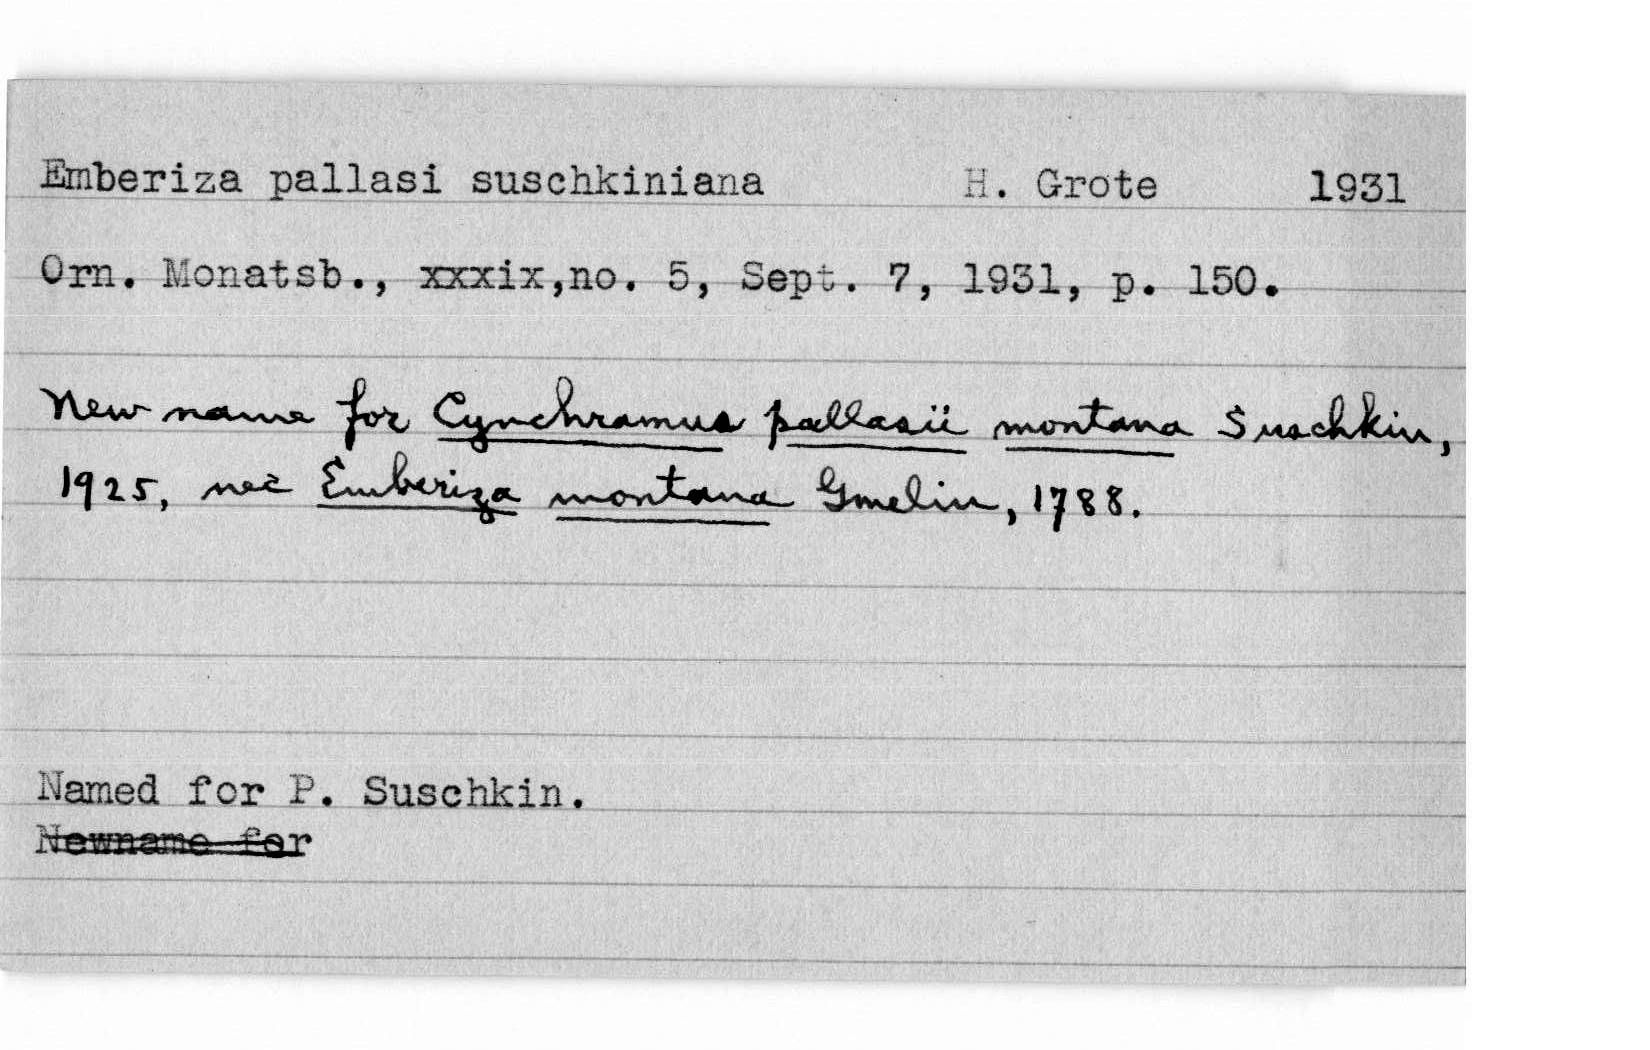 Emberiza pallasi suschkiniana H. Grote 1931
Orn. Monatsb., xxxix,no. 5, Sept. 7, 1931, p. 150.
New name for Cynchramus pallasii montana Suschkin,
1925, nec Emberiza montana Gmelin, 1788.
Named for P. Suschkin.
Newname for